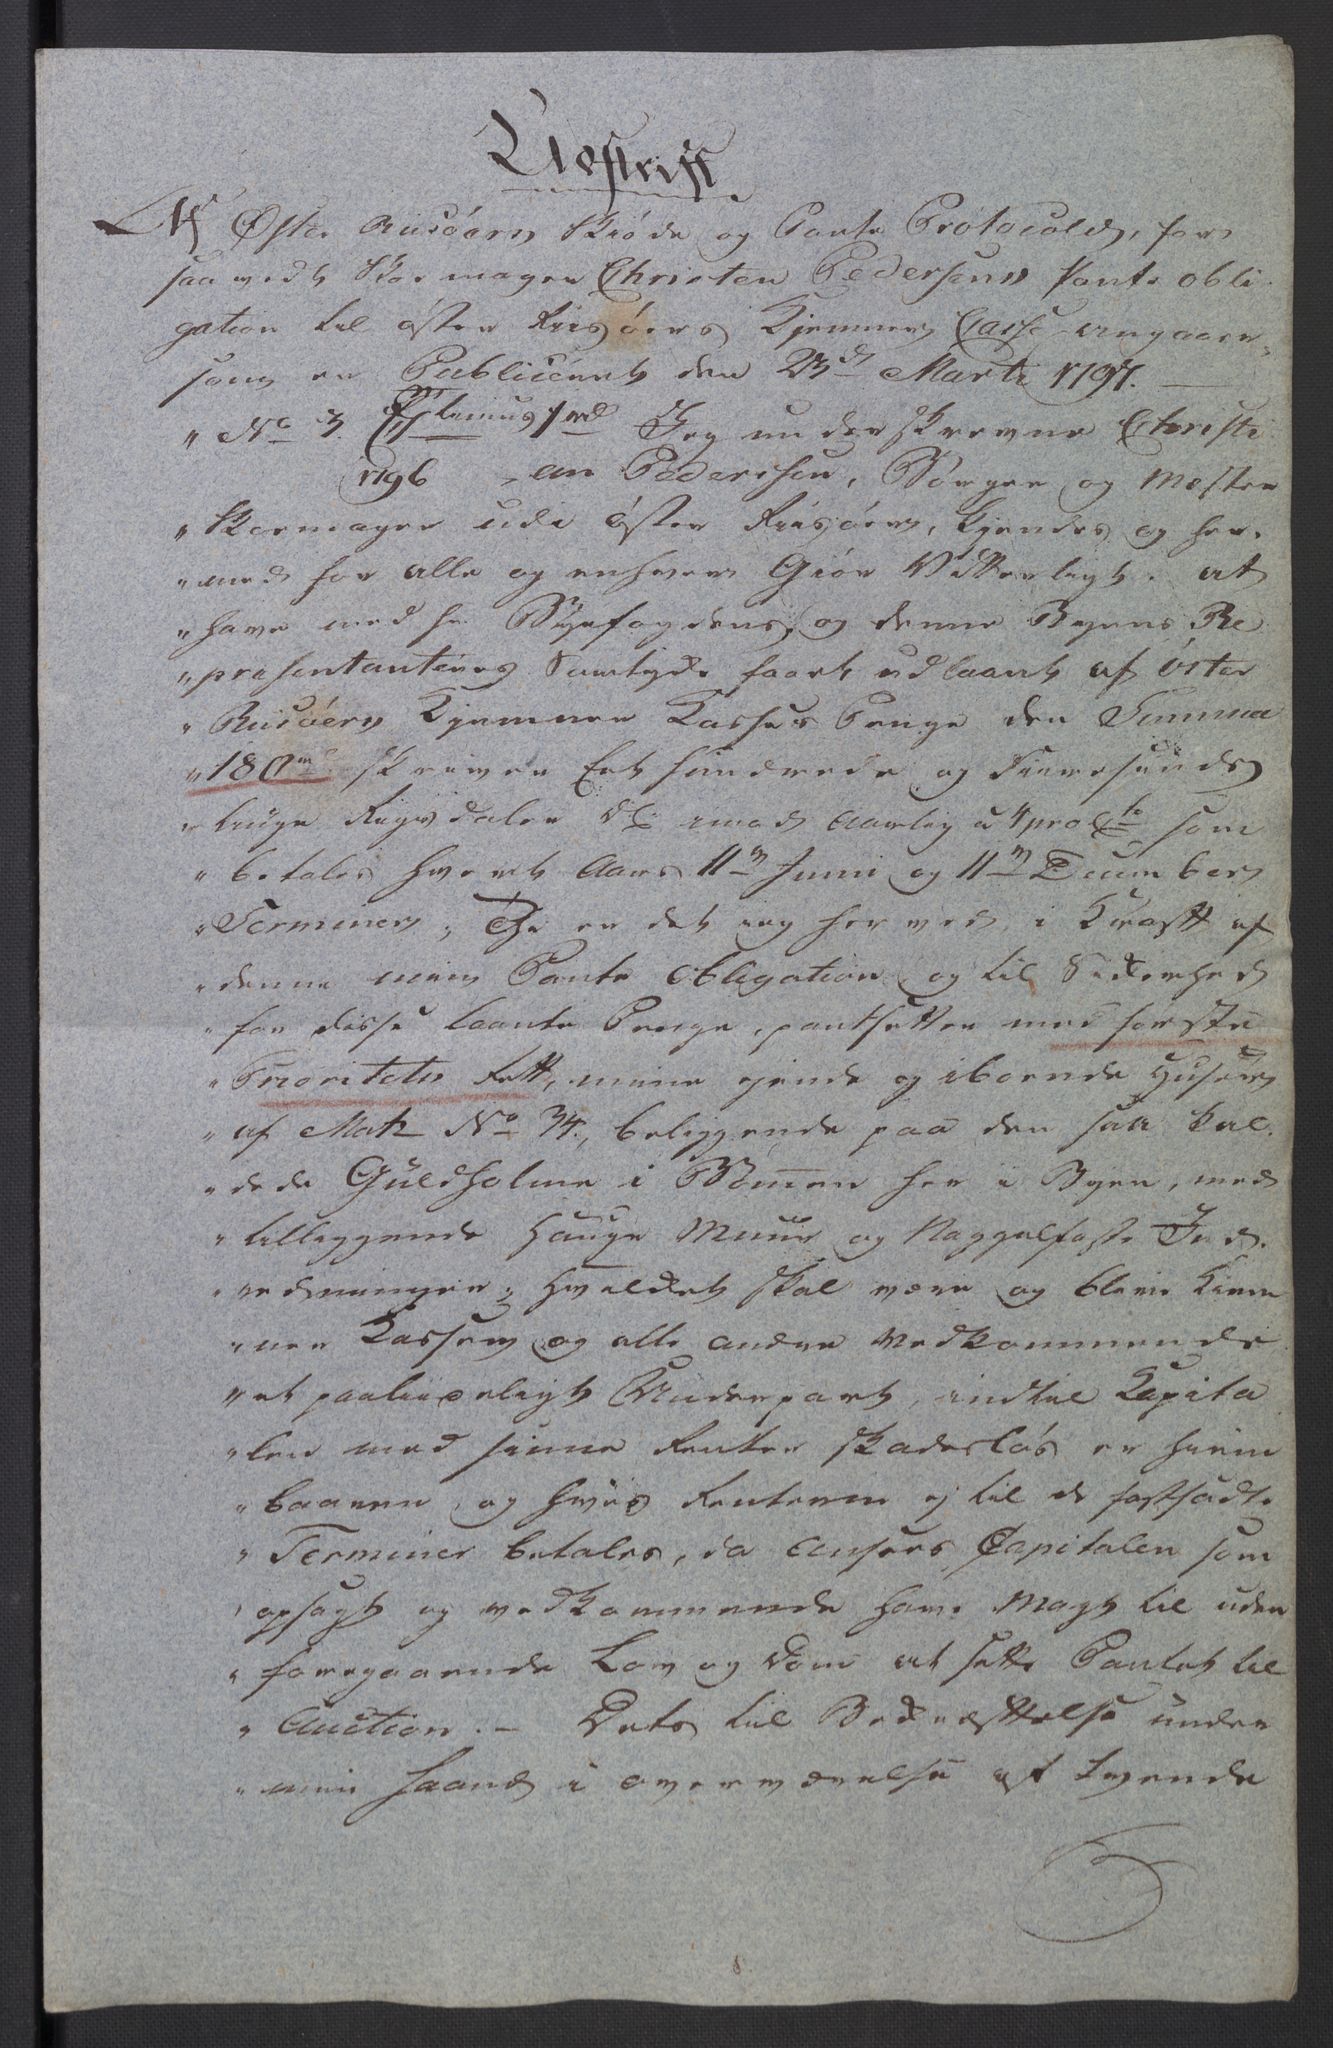 Udskrift
Af Øster Riisöers Skiöde og Pante Protocoll, for
saavidt Skoemager Christen Pedersens Pante obli
gation til öster Riisöers Kjemner Casse angaaer
som er Publiceret den 23d Marti 1797.
" No 3. Jeg underskrevne Christi
1796 "an Pedersen, Borger og Mester
" Skoemager udi öster Riisöer, Kjendes og her-
" med for alle og enhver Giör Vitterligt: at
" have med hr Byefogdens og denne Byens Re
" presentanteres Samtyke faaet udlaant af öster
" Riisöers Kjemner Kasses Penge den Summa
" 180 skriver Eet hundrede og Fiiresinds
" tiuge Rigsdaler imod aarlig a 4 pro Ct som
" betales hvert Aars 11te Juni og 11te December
" Terminer; Thi er det ieg herved i Kraft af
" denne min Pante Obligation og til Sikkerhed
" for disse laante Penge, pantsetter med förste
" Prioritets Rett, mine ejende og iboende Huser
" af Matr No 34, beliggende paa den saa kal-
" dede Guldholme i Bömmen her i Byen, med
" tilliggende Hauge Muur og Naggelfaste Ind-
" redninger; hvilket skal være og blive Kiem
" ner Kassen og alle andre Vedkommende
" et paalideligt Underpant, indtil Kapita
" len med sinne Renter skadeslös er hiem
" baaren, og hvis Renterne ej til de fastsadte
" Terminer betales, da ansees Capitalen som
" opsagt og vedkommende have Magt til uden
" foregaaende Lov og Dom at sette Pantet til
" Auction. - Dets til Bekræftelse under
" min Haand i overværelse af tvende